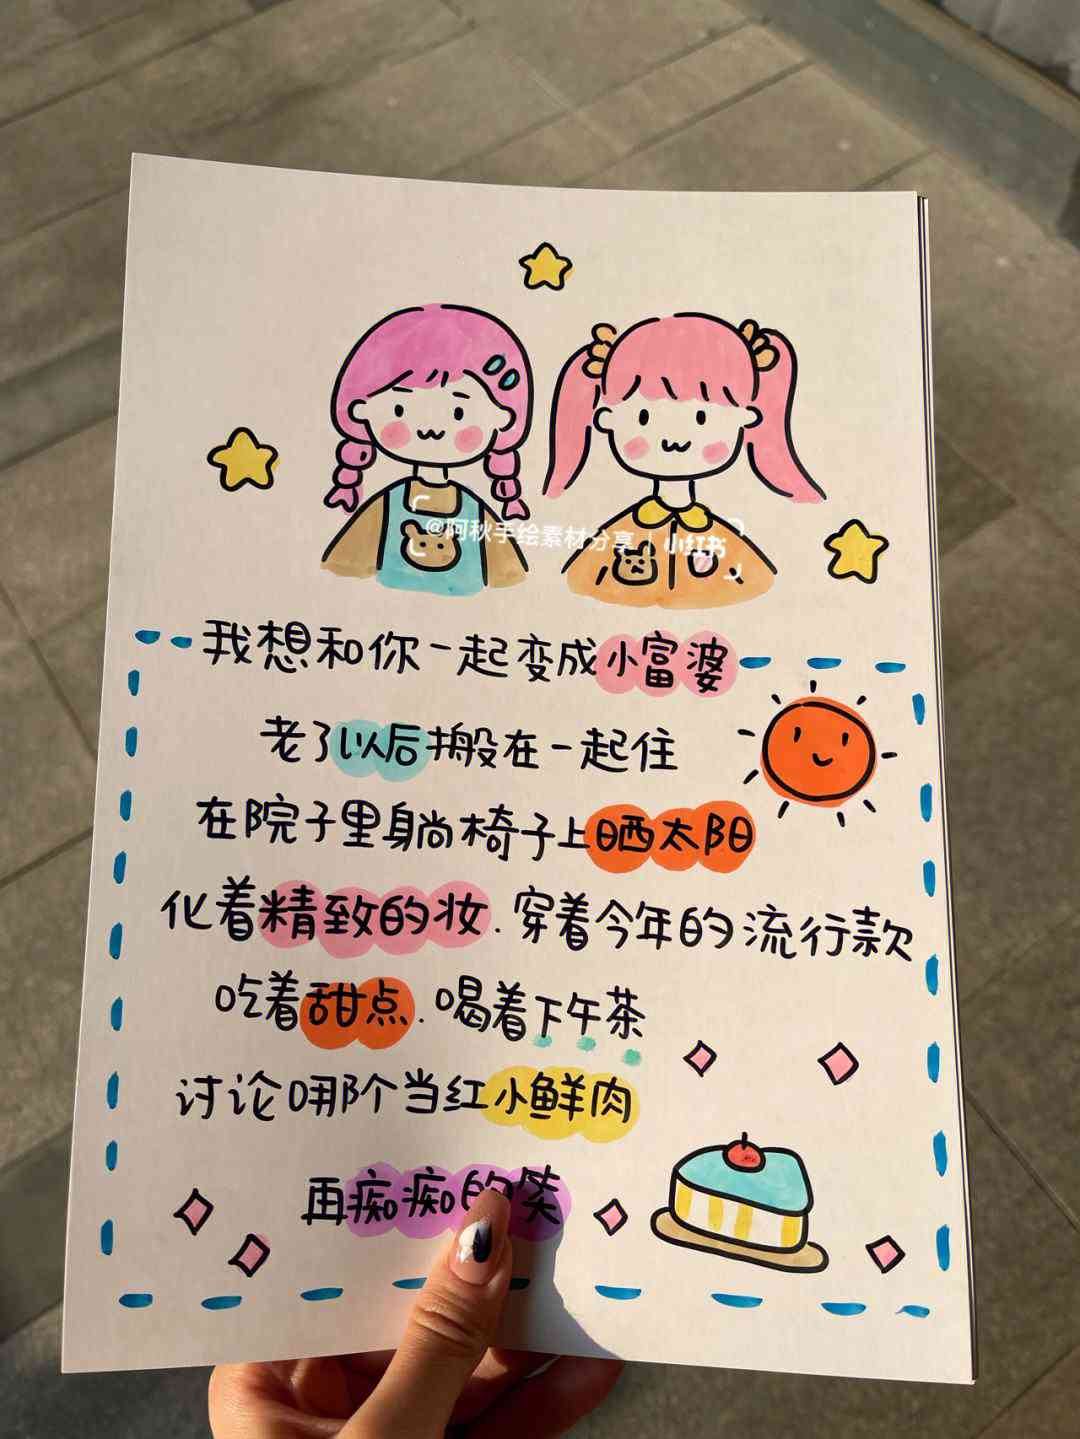 @阿秋手绘素材分享 | 小红书
我想和你一起变成小富婆
老了以后搬在一起住
在院子里躺椅子上晒太阳
化着精致的妆.穿着今年的流行款
吃着甜点.喝着下午茶
讨论哪个当红小鲜肉
再痴痴的笑